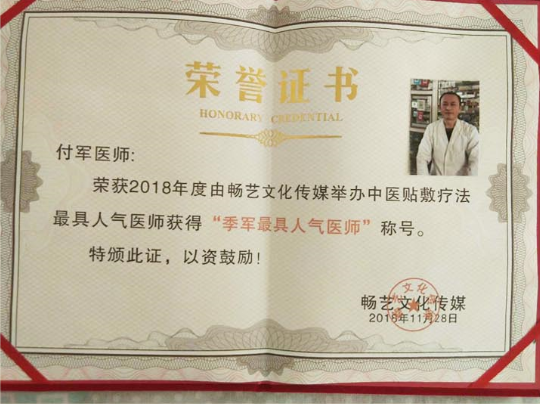 荣誉证书
HONORARY CREDENTIAL
付军医师:
荣获2018年度由畅艺文化传媒举办中医贴敷疗法
最具人气医师获得“季军最具人气医师”称号。
特颁此证,以资鼓励!
畅艺文化传媒
2018年11月28日